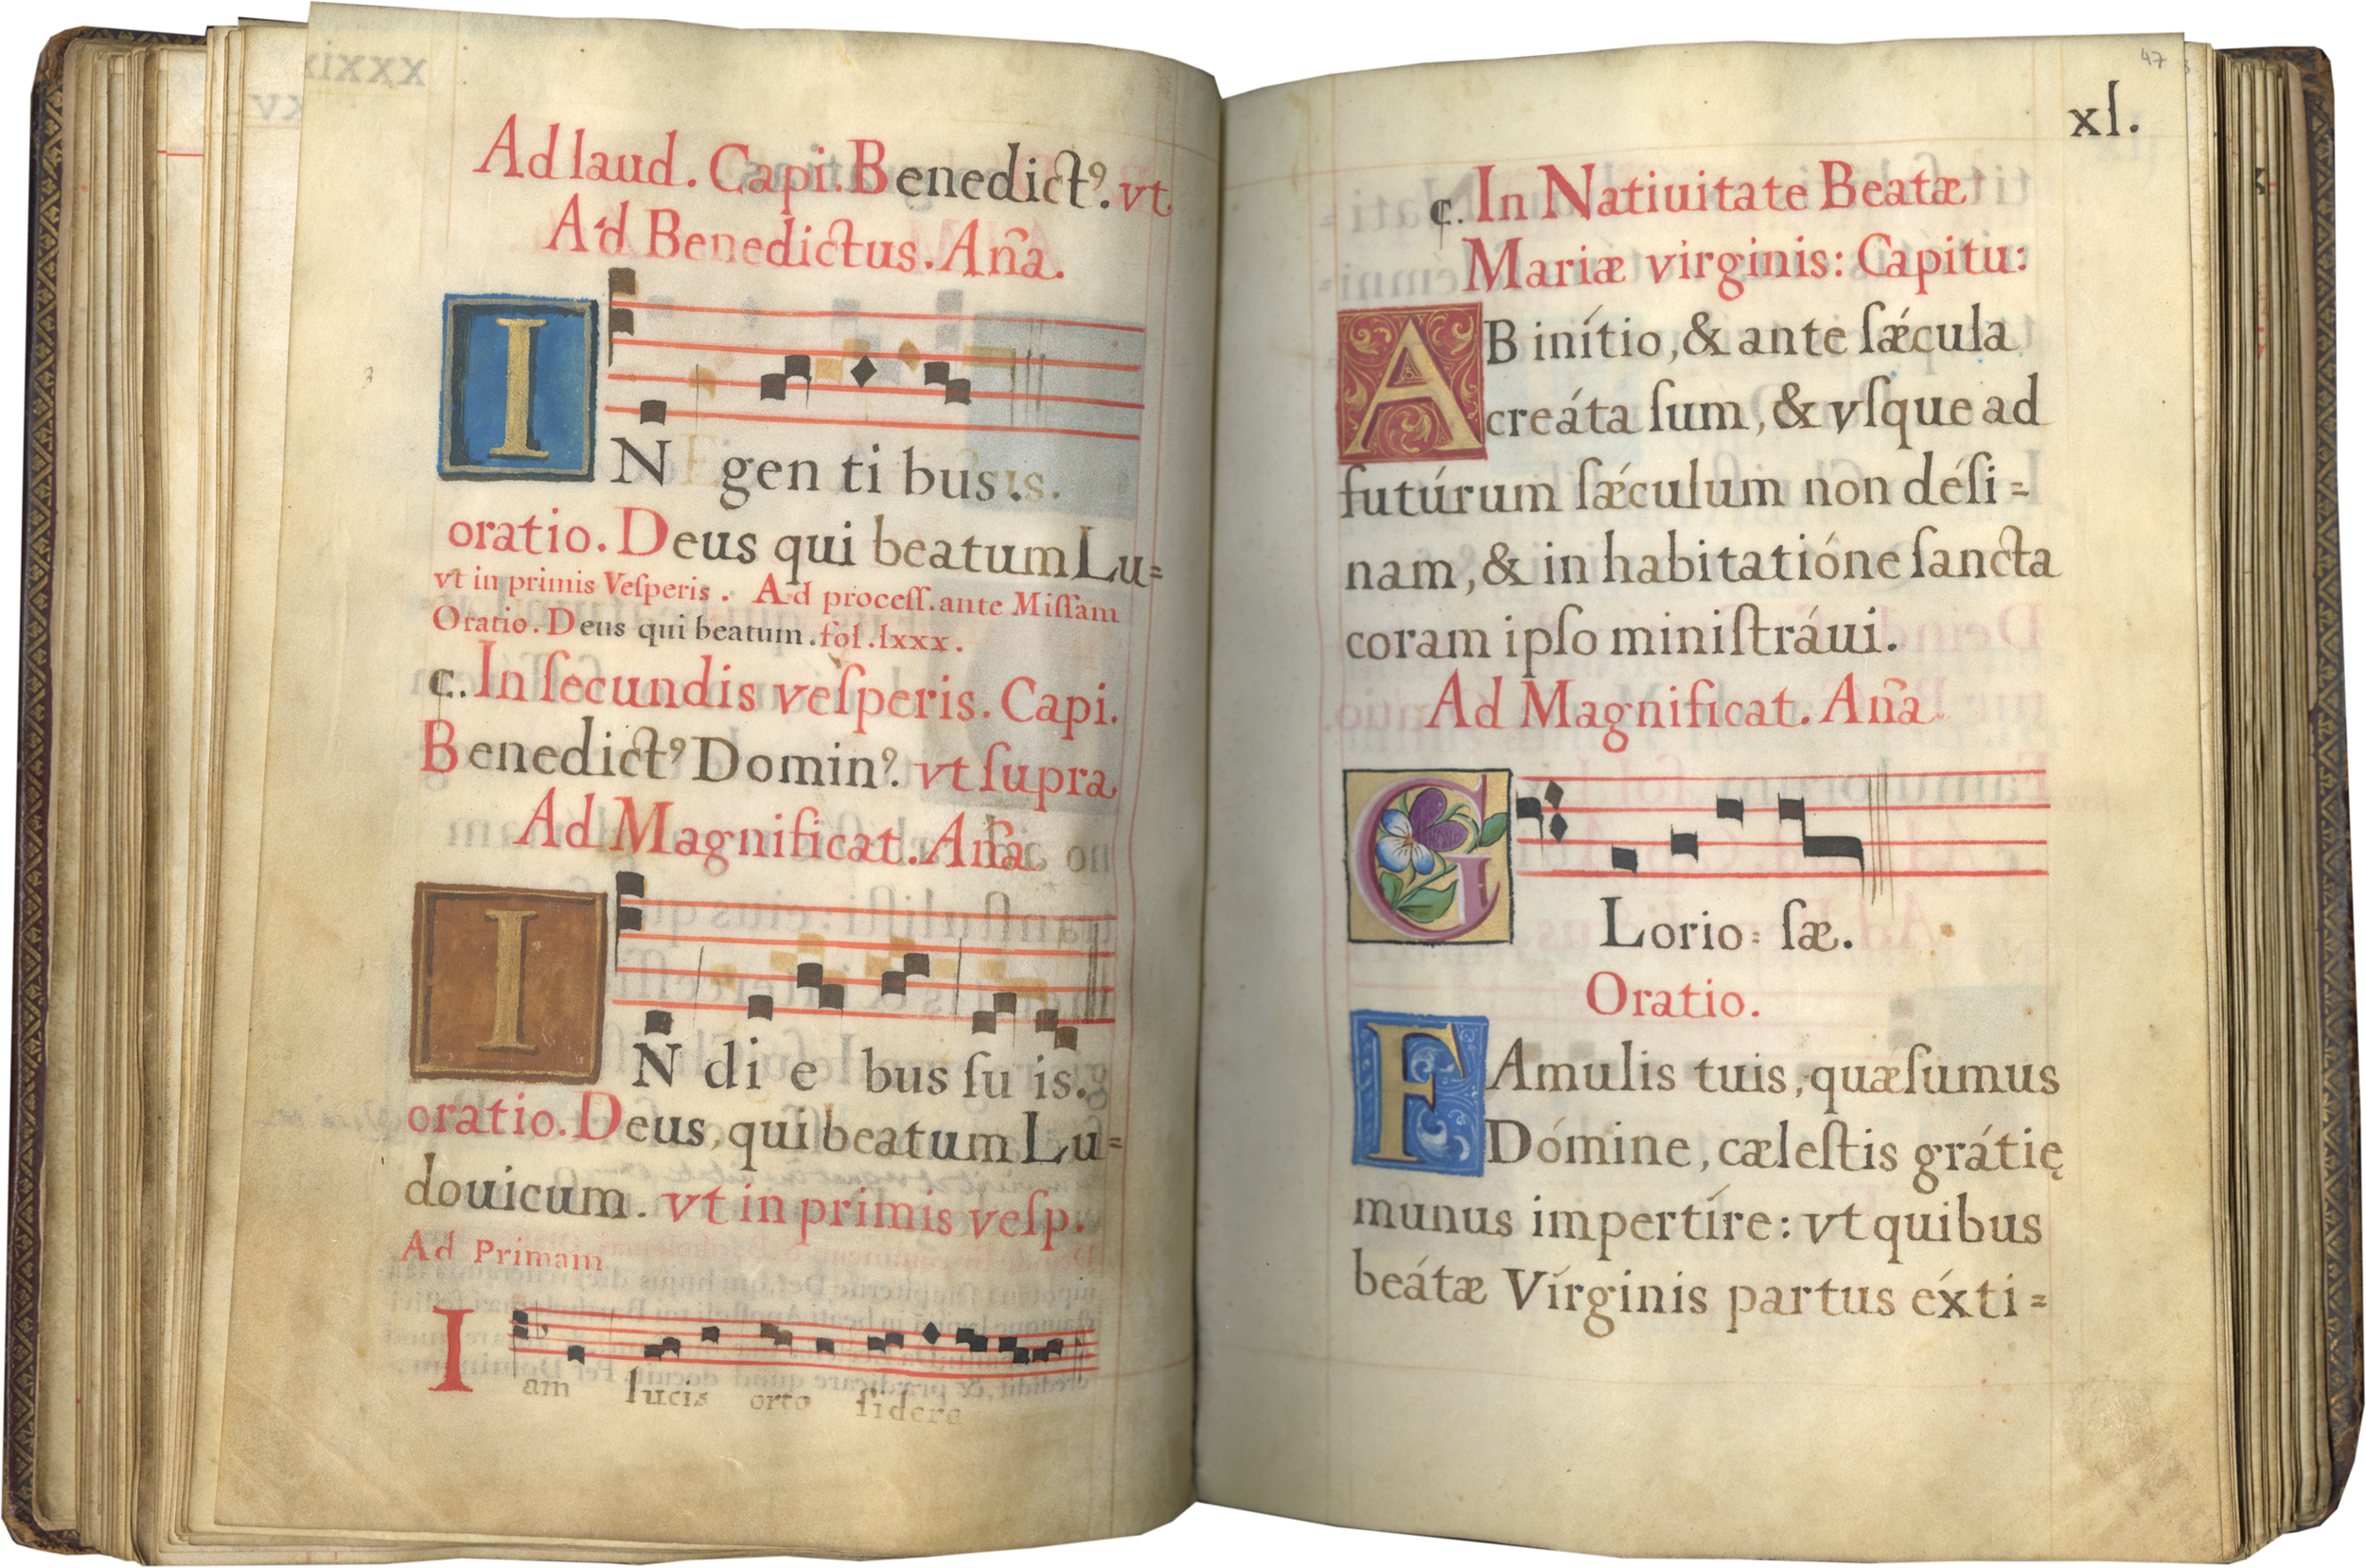 Ad laud. Capi. Benedictꝰ. vt
Ad Benedictus. Añа.
IN gen ti bus.
oratio. Deus qui beatum Lu=
vt in primis Veſperis. Ad proceſſ. ante Miſſam
Oratio. Deus qui beatum. fol. lxxx.
c. In ſecundis veſperis. Capi.
Benedictꝰ Dominꝰ. vt ſupra
Ad Magnificat. Aña
IN di e bus ſu is.
oratio. Deus, qui beatum Lu=
douicum. vt in primis veſp.
Ad Primam
Iam lucis orto ſidere
47
xl.
c. In Natiuitate Beatæ
Mariæ virginis: Capitu:
AB inítio, & ante ſǽcula
creáta ſum, & vſque ad
futúrum ſǽculum non déſi=
nam, & in habitatióne ſancta
coram ipſo miniſtráui.
Ad Magnificat. Aña
GLorio= ſæ.
Oratio.
FAmulis tuis, quæſumus
Dómine, cæleſtis grátię
munus impertíre: vt quibus
beátæ Vírginis partus éxti=